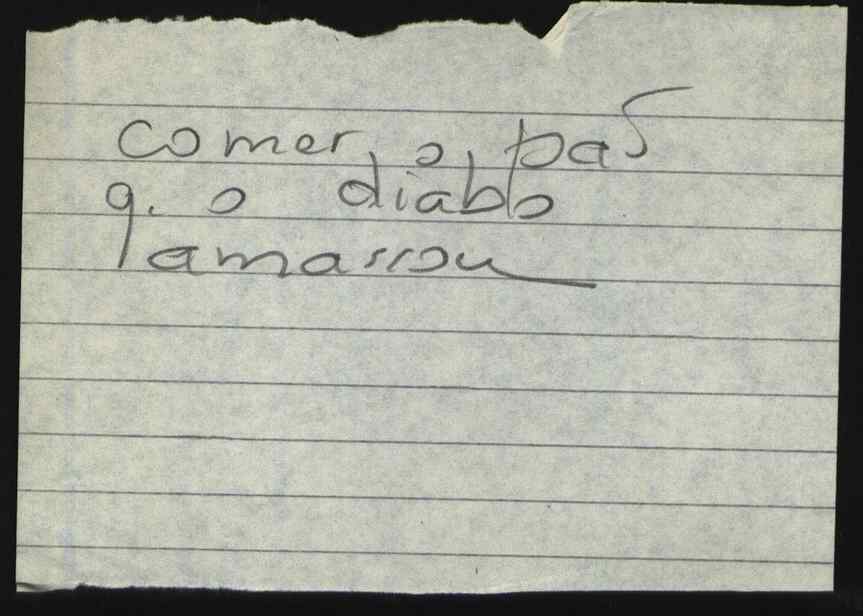 comer o pão
q. o diabo
amassou